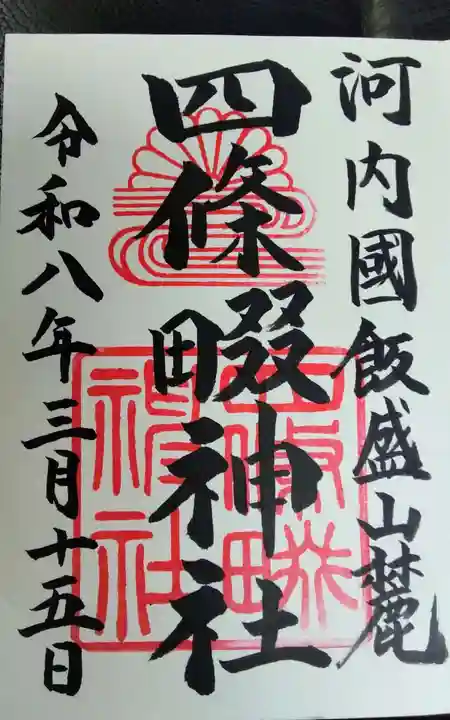 河内國飯盛山麓
四條畷神社
令和八年三月十五日
四條畷神社